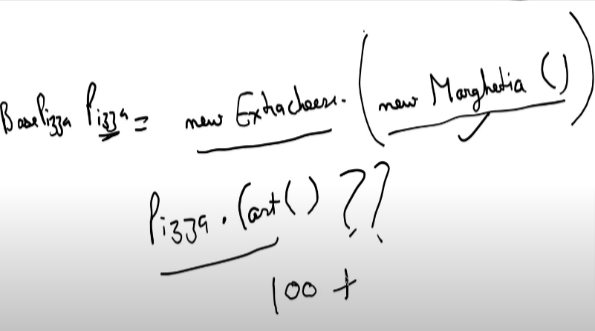 BasePizza Pizza = new Extracheese. (new Marghetia ())
Pizza . Cost() ??
100 +